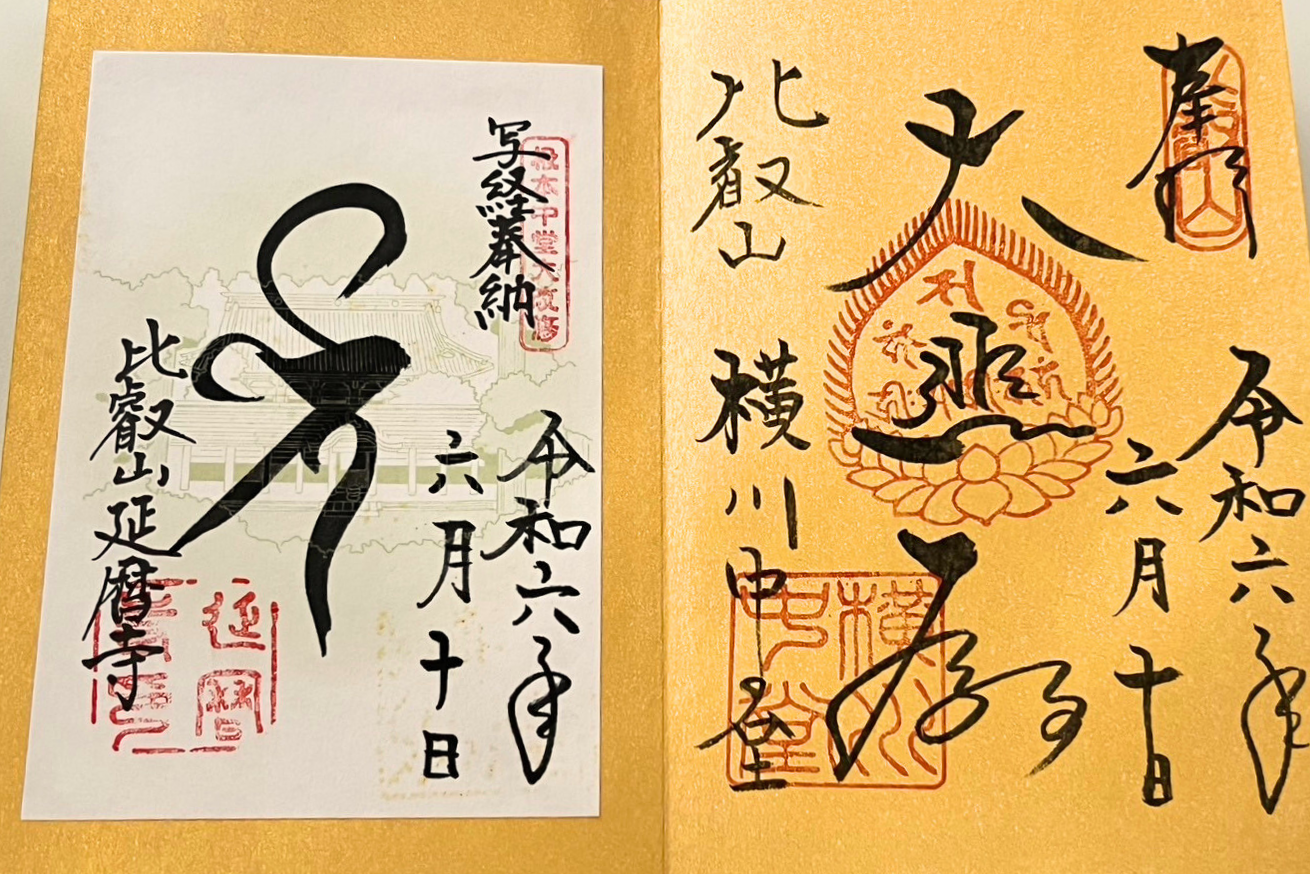 奉拝
比叡山
令和六年
六月十日
大悲殿
比叡山 横川中堂
横川中堂
根本中堂大改修
写経奉納
令和六年
六月十日
比叡山延暦寺
延暦